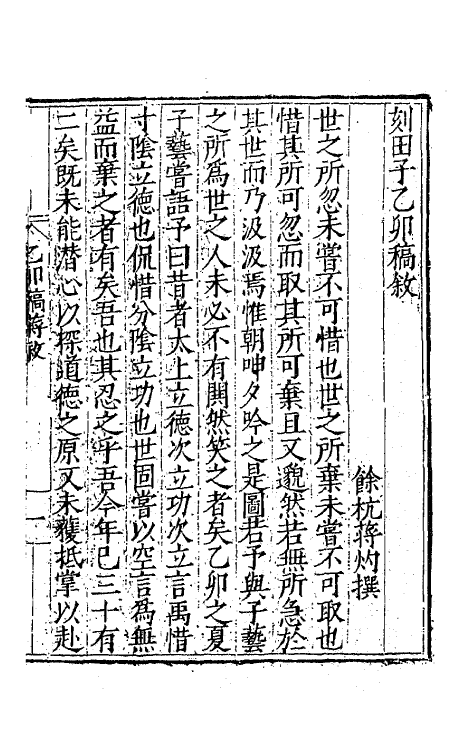 刻田子乙卯稿敘
餘杭蔣灼撰
世之所忽未嘗不可惜也世之所棄未嘗不可取也
惜其所可忽而取其所可棄且又邈然若無所急於
其世而乃汲汲焉惟朝呻夕吟之是圖若予與子藝
之所爲世之人未必不有閧然笑之者矣乙卯之夏
子藝嘗語予曰昔者太上立德次立功次立言禹惜
寸陰立德也侃惜分陰立功也世固嘗以空言爲無
益而棄之者有矣吾也其忍之乎吾今年已三十有
二矣既未能潛心以探道德之原又未獲抵掌以赴
乙卯稿蔣敘
一